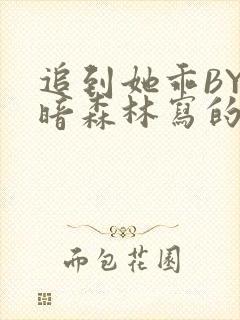 追到她乖BY
暗森林寫的
而包花園